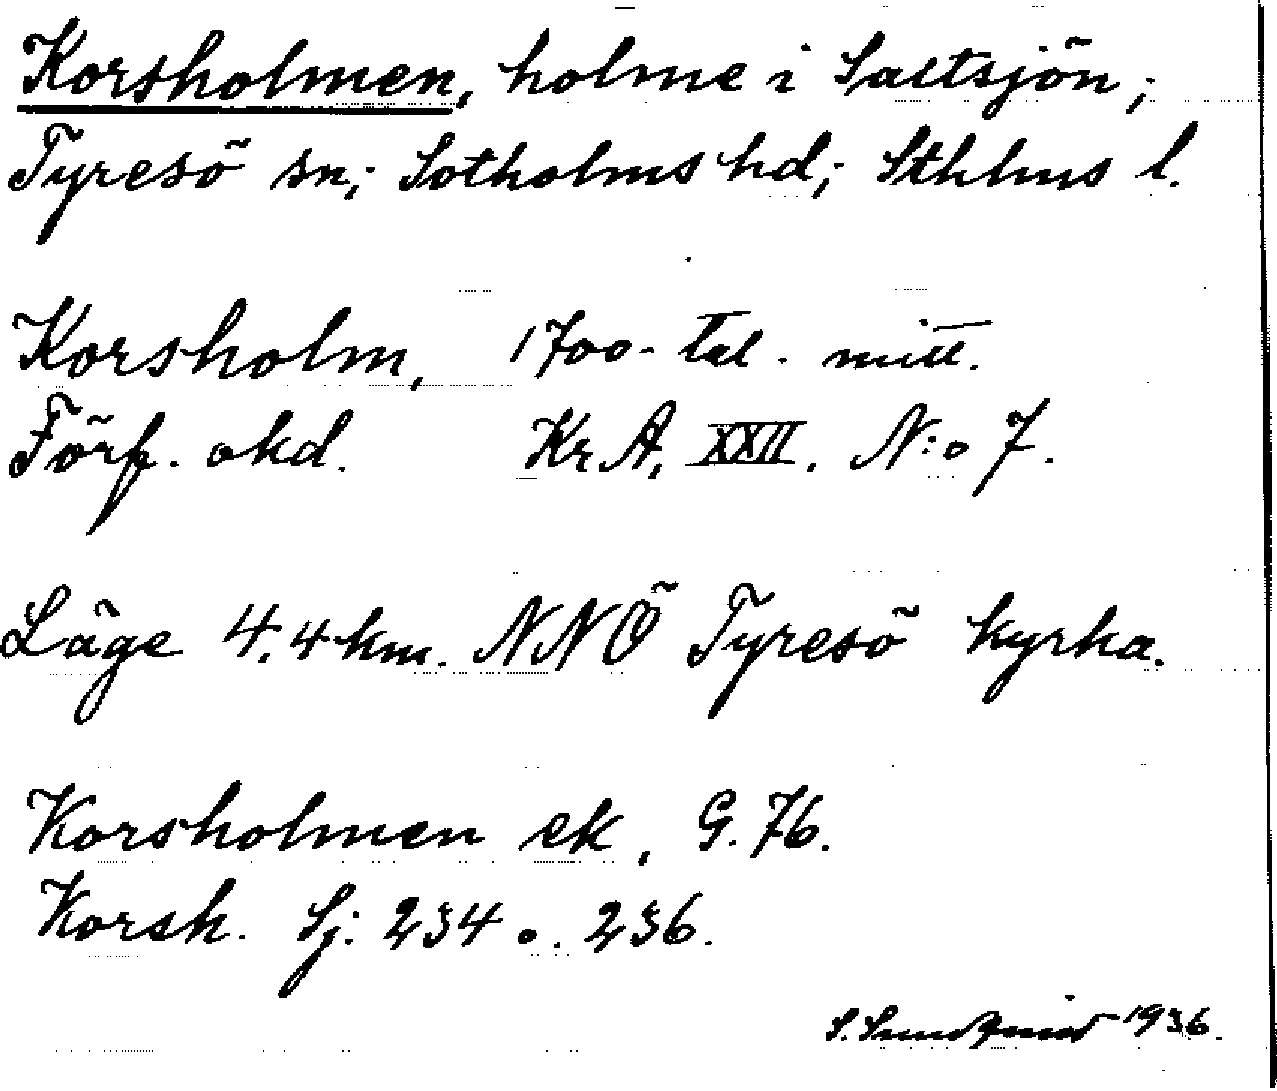 Korsholmen, holme i Saltsjön;
Tyresö sn; Sotholms hd; Sthlms l.
Korsholm, 1700-tal. mitt.
Förf. okd. Kr A, XXII. N:o 7.
Läge 4.4 km. NNÖ Tyresö kyrka.
Korsholmen ek, G. 76.
Korsh. Sj: 234 o. 236.
S. Sundqvist 1936.